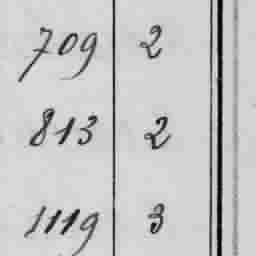 709 2
813 2
1119 3